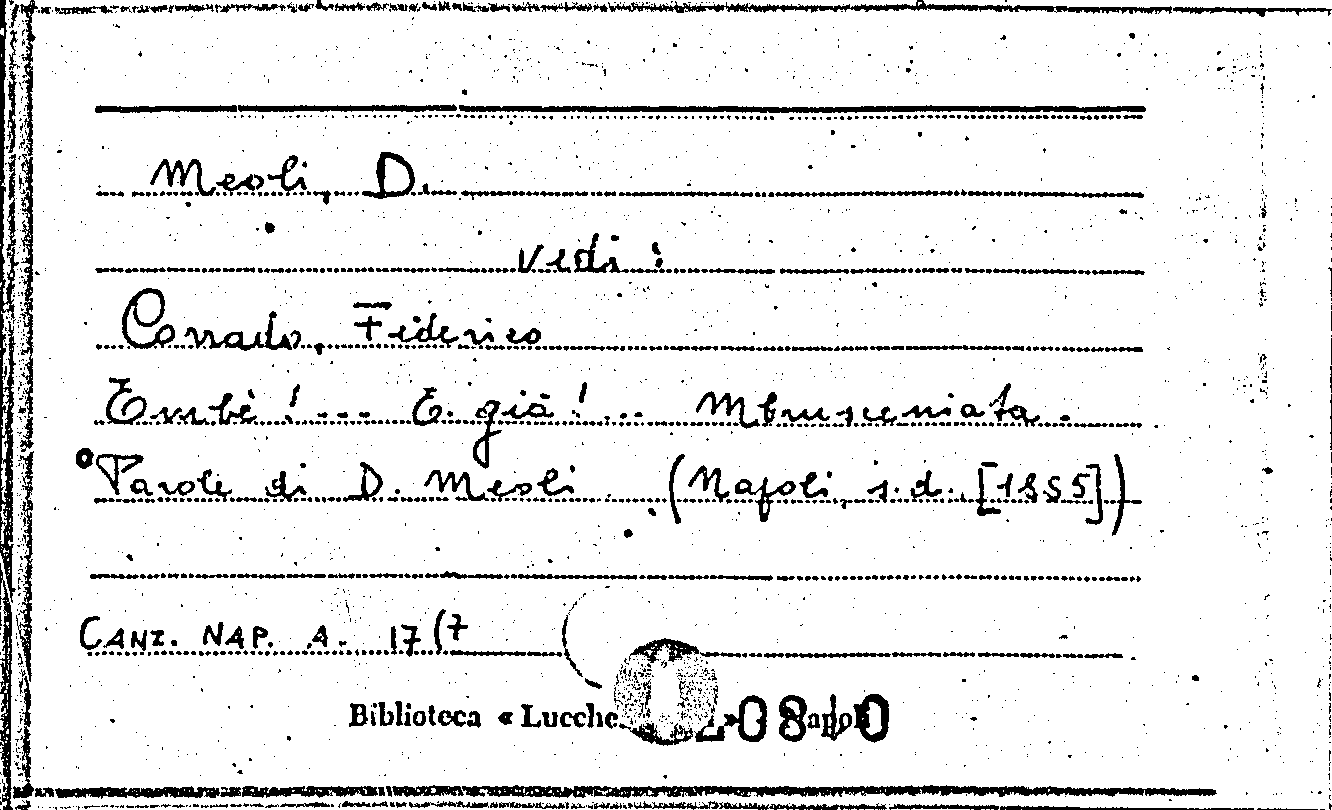 Meoli, D.
vedi:
Corrado, Federico
Embè!... E. già!... Mbrusceniata.
Parole di D. Meoli. (Napoli, s.d. [1885])
CANZ. NAP. A. 17(7
Biblioteca « Lucche